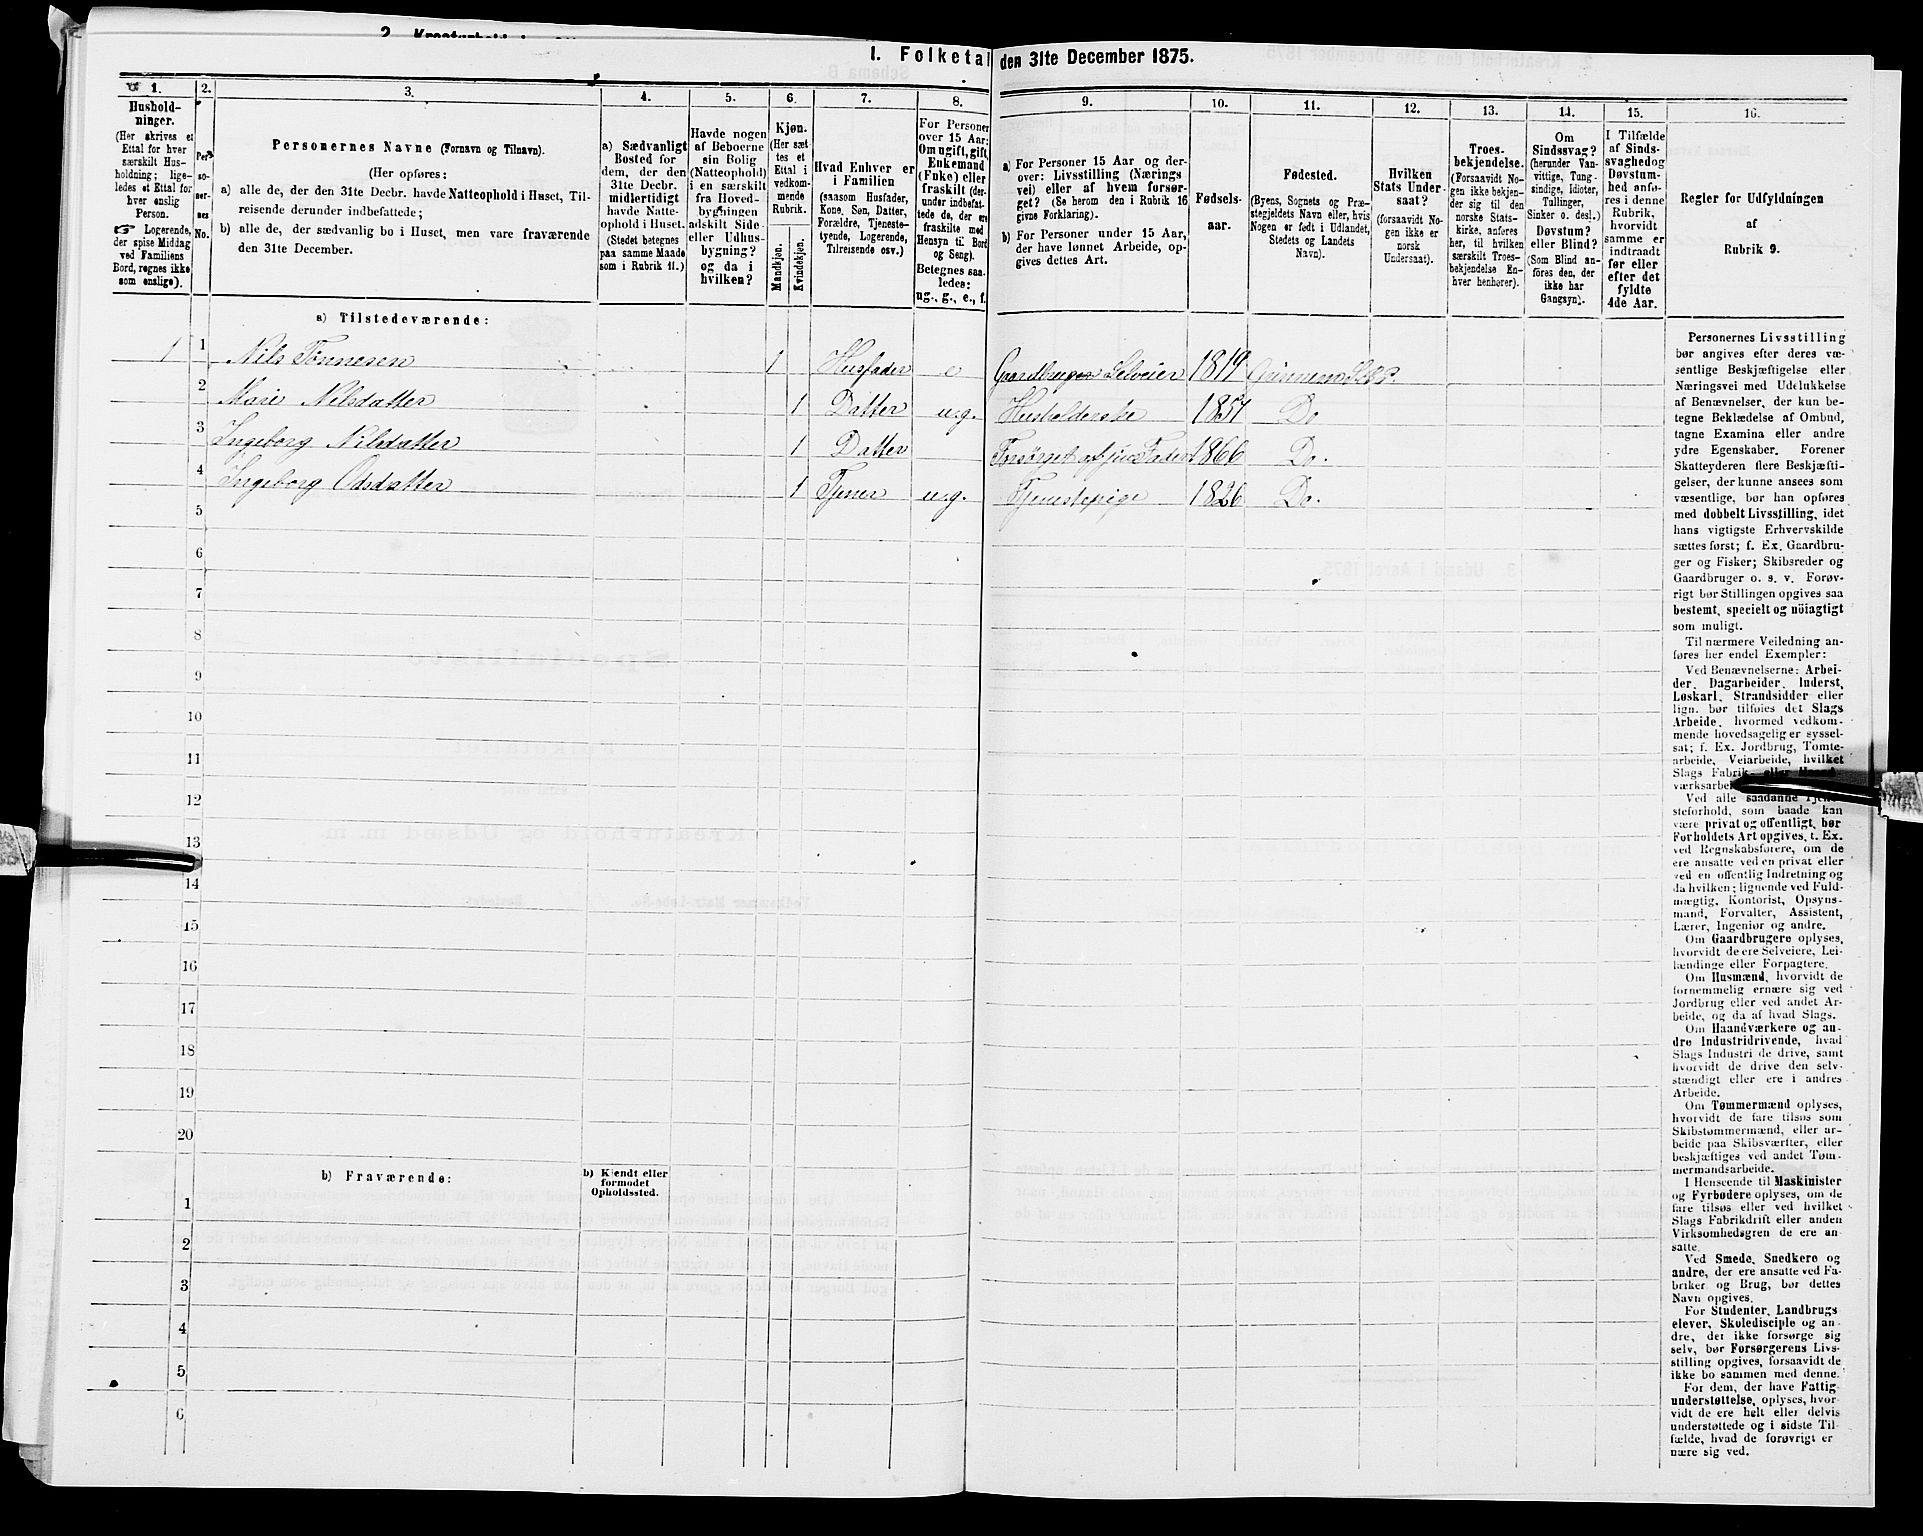 2. Kreaturhold
I. Folketal den 31te December 1875.
1.
Hushold-
ninger.
(Her skrives et
Ettal for hver
særskilt Hus-
holdning; lige-
ledes et Ettal for
hver enslig
Person.
☞ Logerende,
der spise Middag
ved Familiens
Bord, regnes ikke
som enslige).
2.
Per-
so-
ner-
nes
No.
3.
Personernes Navne (Fornavn og Tilnavn).
(Her opføres:
a) alle de, der den 31te Decbr. havde Natteophold i Huset, Til-
reisende derunder indbefattede;
b) alle de, der sædvanlig bo i Huset, men vare fraværende
den 31te December.
4.
a) Sædvanligt
Bosted for
dem, der den
31te Decbr.
midlertidigt
havde Natte-
ophold i Huset.
(Stedet betegnes
paa samme Maade
som i Rubrik 11.)
5.
Havde nogen
af Beboerne
sin Bolig
(Natteophold)
i en særskilt
fra Hoved-
bygningen
adskilt Side-
eller Udhus-
bygning?
og da i
hvilken?
6.
Kjøn.
(Her sæt-
tes et
Ettal i
vedkom-
mende
Rubrik.
Mandkjøn.
Kvindekjøn.
7.
Hvad Enhver er
i Familien
(saasom Husfader,
Kone, Søn, Datter,
Forældre, Tjeneste-
tyende, Logerende,
Tilreisende osv.)
8.
For Personer
over 15 Aar:
Om ugift, gift,
Enkemand
(Enke) eller
fraskilt (der-
under indbefat-
tede de, der ere
fraskilte med
Hensyn til Bord
og Seng).
Betegnes saa-
ledes:
ug., g., e., f.
9.
a) For Personer 15 Aar og der-
over: Livsstilling (Nærings
vei) eller af hvem forsør-
get? (Se herom den i Rubrik 16
givne Forklaring).
b) For Personer under 15 Aar,
der have lønnet Arbeide, op-
gives dettes Art.
10.
Fødsels-
aar.
11.
Fødested.
(Byens, Sognets og Præ-
stegjeldets Navn eller, hvis
Nogen er født i Udlandet,
Stedets og Landets
Navn).
12.
Hvilken
Stats Under-
saat?
(forsaavidt No-
gen ikke er
norsk
Undersaat).
13.
Troes-
bekjendelse.
(Forsaavidt No-
gen ikke bekjen-
der sig til den
norske Stats-
kirke, anføres
her, til hvilken
særskilt Troes-
bekjendelse En-
hver henhører).
14.
Om
Sindssvag?
(herunder Van-
vittige, Tung-
sindige, Idioter,
Tullinger,
Sinker o. desl.)
Døvstum?
eller Blind?
(Som Blind an-
føres den, der
ikke har
Gangsyn).
15.
I Tilfælde
af Sinds-
svaghedog
Døvstum-
hed anfø-
res i denne
Rubrik,
hvorvidt
samme er
indtraadt
før eller
efter det
fyldte
4de Aar.
16.
Regler for Udfyldningen
af
Rubrik 9.
a) Tilstedeværende:
1 1 Nils Tønnesen 1 Husfader e Gaardbruger Selveier 1819
2 Marie Nilsdatter 1 Datter u.g. Husholderske 1857 Do
3 Ingeborg Nilsdatter 1 Datter Forsørget af sin Fader 1866 Do.
4 Ingeborg Odsdatter 1 Tjener u.g. Tjenestepige 1826 Do.
5
6
7
8
9
10
11
12
13
14
15
16
17
18
19
20
b) Fraværende:
b) Kjendt eller
formodet
Opholdssted.
1
2
3
4
5
6
Personernes Livsstilling
bør angives efter deres væ-
sentlige Beskjæftigelse eller
Næringsvei med Udelukkelse
af Benævnelser, der kun be-
tegne Beklædelse af Ombud,
tagne Examina eller andre
ydre Egenskaber. Forener
Skatteyderen flere Beskjæfti-
gelser, der kunne ansees som
væsentlige, bør han opføres
med dobbelt Livsstilling, idet
hans vigtigste Erhvervskilde
sættes først; f. Ex. Gaardbru-
ger og Fisker; Skibsreder og
Gaardbruger o. s. v. Forøv-
rigt bør Stillingen opgives saa
bestemt, specielt og nöiagtigt
som muligt.
Til nærmere Veiledning an-
føres her endel Exempler:
Ved Benævnelserne: Arbei-
der, Dagarbeider, Inderst,
Løskarl, Strandsidder eller
lign. bør tilføies det Slags
Arbeide, hvormed vedkom-
mende hovedsagelig er syssel-
sat; f. Ex. Jordbrug, Tomte-
arbeide, Veiarbeide, hvilket
Slags Fabrik- eller Haand-
værksarbe
Ved alle saadanne Tjene-
steforhold, som baade kan
være privat og offentligt, bør
Forholdets Art opgives, t. Ex.
ved Regnskabsførere, om de
ere ansatte ved en privat eller
ved en offentlig Indretning og
da hvilken; lignende ved Fuld-
mægtig, Kontorist, Opsyns-
mand, Forvalter, Assistent,
Lærer, Ingeniør og andre.
Om Gaardbrugere oplyses,
hvorvidt de ere Selveiere, Lei-
lændinge eller Forpagtere.
Om Husmænd, hvorvidt de
fornemmelig ernære sig ved
Jordbrug eller ved andet Ar-
beide, og da af hvad Slags.
Om Haandværkere og an-
dre Industridrivende, hvad
Slags Industri de drive, samt
hvorvidt de drive den selv-
stændigt eller ere i andres
Arbeide.
Om Tømmermænd oplyses,
hvorvidt de fare tilsøs som
Skibstømmermænd, eller ar-
beide paa Skibsværfter, eller
beskjæftiges ved andet Tøm-
mermandsarbeide.
I Henseende til Maskinister
og Fyrbødere oplyses, om de
fare tilsøs eller ved hvilket
Slags Fabrikdrift eller anden
Virksomhedsgren de ere an-
satte.
Ved Smede, Snedkere og
andre, der ere ansatte ved Fa-
briker og Brug, bør dettes
Navn opgives.
For Studenter, Landbrugs
elever, Skoledisciple og an-
dre, der ikke forsørge sig
selv, bør Forsørgerens Livs-
stilling opgives, forsaavidt de
ikke bo sammen med denne.
For dem, der have Fattig-
understøttelse, oplyses, hvor-
vidt de ere helt eller delvis
understøttede og i sidste Til-
fælde, hvad de forøvrigt er
nære sig ved.